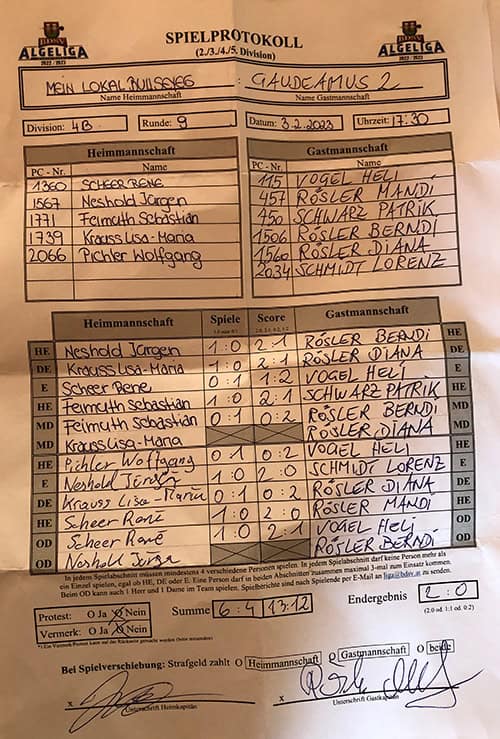 BDSV
ALGELIGA
2022 / 2023
SPIELPROTOKOLL
(2./3./4./5. Division)
BDSV
ALGELIGA
2022 / 2023
MEIN LOKAL BULLSEYE 6 : GAUDEAMUS 2
Name Heimmannschaft Name Gastmannschaft
Division: 4B Runde: 9 Datum: 3.2.2023 Uhrzeit: 17:30
Heimmannschaft Gastmannschaft
PC - Nr. Name PC - Nr. Name
1360 SCHEER RENE 115 VOGEL HELI
1567 Neshold Jürgen 457 RÖSLER MANDI
1771 Feimuth Sebastian 450 SCHWARZ PATRIK
1739 Krauss Lisa-Maria 1506 RÖSLER BERNDI
2066 Pichler Wolfgang 1560 RÖSLER DIANA
2034 SCHMIDT LORENZ
Heimmannschaft Spiele Score Gastmannschaft
HE Neshold Jürgen 1:0 2:1 RÖSLER BERNDI HE
DE Krauss Lisa-Maria 1:0 2:1 RÖSLER DIANA DE
E Scheer Rene 0:1 1:2 VOGEL HELI E
HE Feimuth Sebastian 1:0 2:1 SCHWARZ PATRIK HE
MD Feimuth Sebastian 0:1 0:2 RÖSLER BERNDI MD
MD Krauss Lisa-Maria RÖSLER DIANA MD
HE Pichler Wolfgang 0:1 0:2 VOGEL HELI HE
E Neshold Jürgen 1:0 2:0 SCHMIDT LORENZ E
DE Krauss Lisa-Maria 0:1 0:2 RÖSLER DIANA DE
HE Scheer René 1:0 2:0 RÖSLER MANDI HE
OD Scheer René 1:0 2:1 VOGEL HELI OD
OD Neshold Jürgen RÖSLER BERNDI OD
In jedem Spielabschnitt müssen mindestens 4 verschiedene Personen spielen. In jedem Spielabschnitt darf keine Person mehr als
ein Einzel spielen, egal ob HE, DE oder E. Eine Person darf in beiden Abschnitten zusammen maximal 3-mal zum Einsatz kommen.
Beim OD kann auch 1 Herr und 1 Dame im Team spielen. Spielbericht sind nach Spielende per E-Mail an liga@bdsv.at zu senden.
Protest: O Ja O Nein Summe 6:4 13:12 Endergebnis 2:0
Vermerk: O Ja O Nein (2:0 od. 1:1 od. 0:2)
Bei Spielverschiebung: Strafgeld zahlt O Heimmannschaft O Gastmannschaft O beide
x x
Unterschrift Heimkapitän Unterschrift Gastkapitän